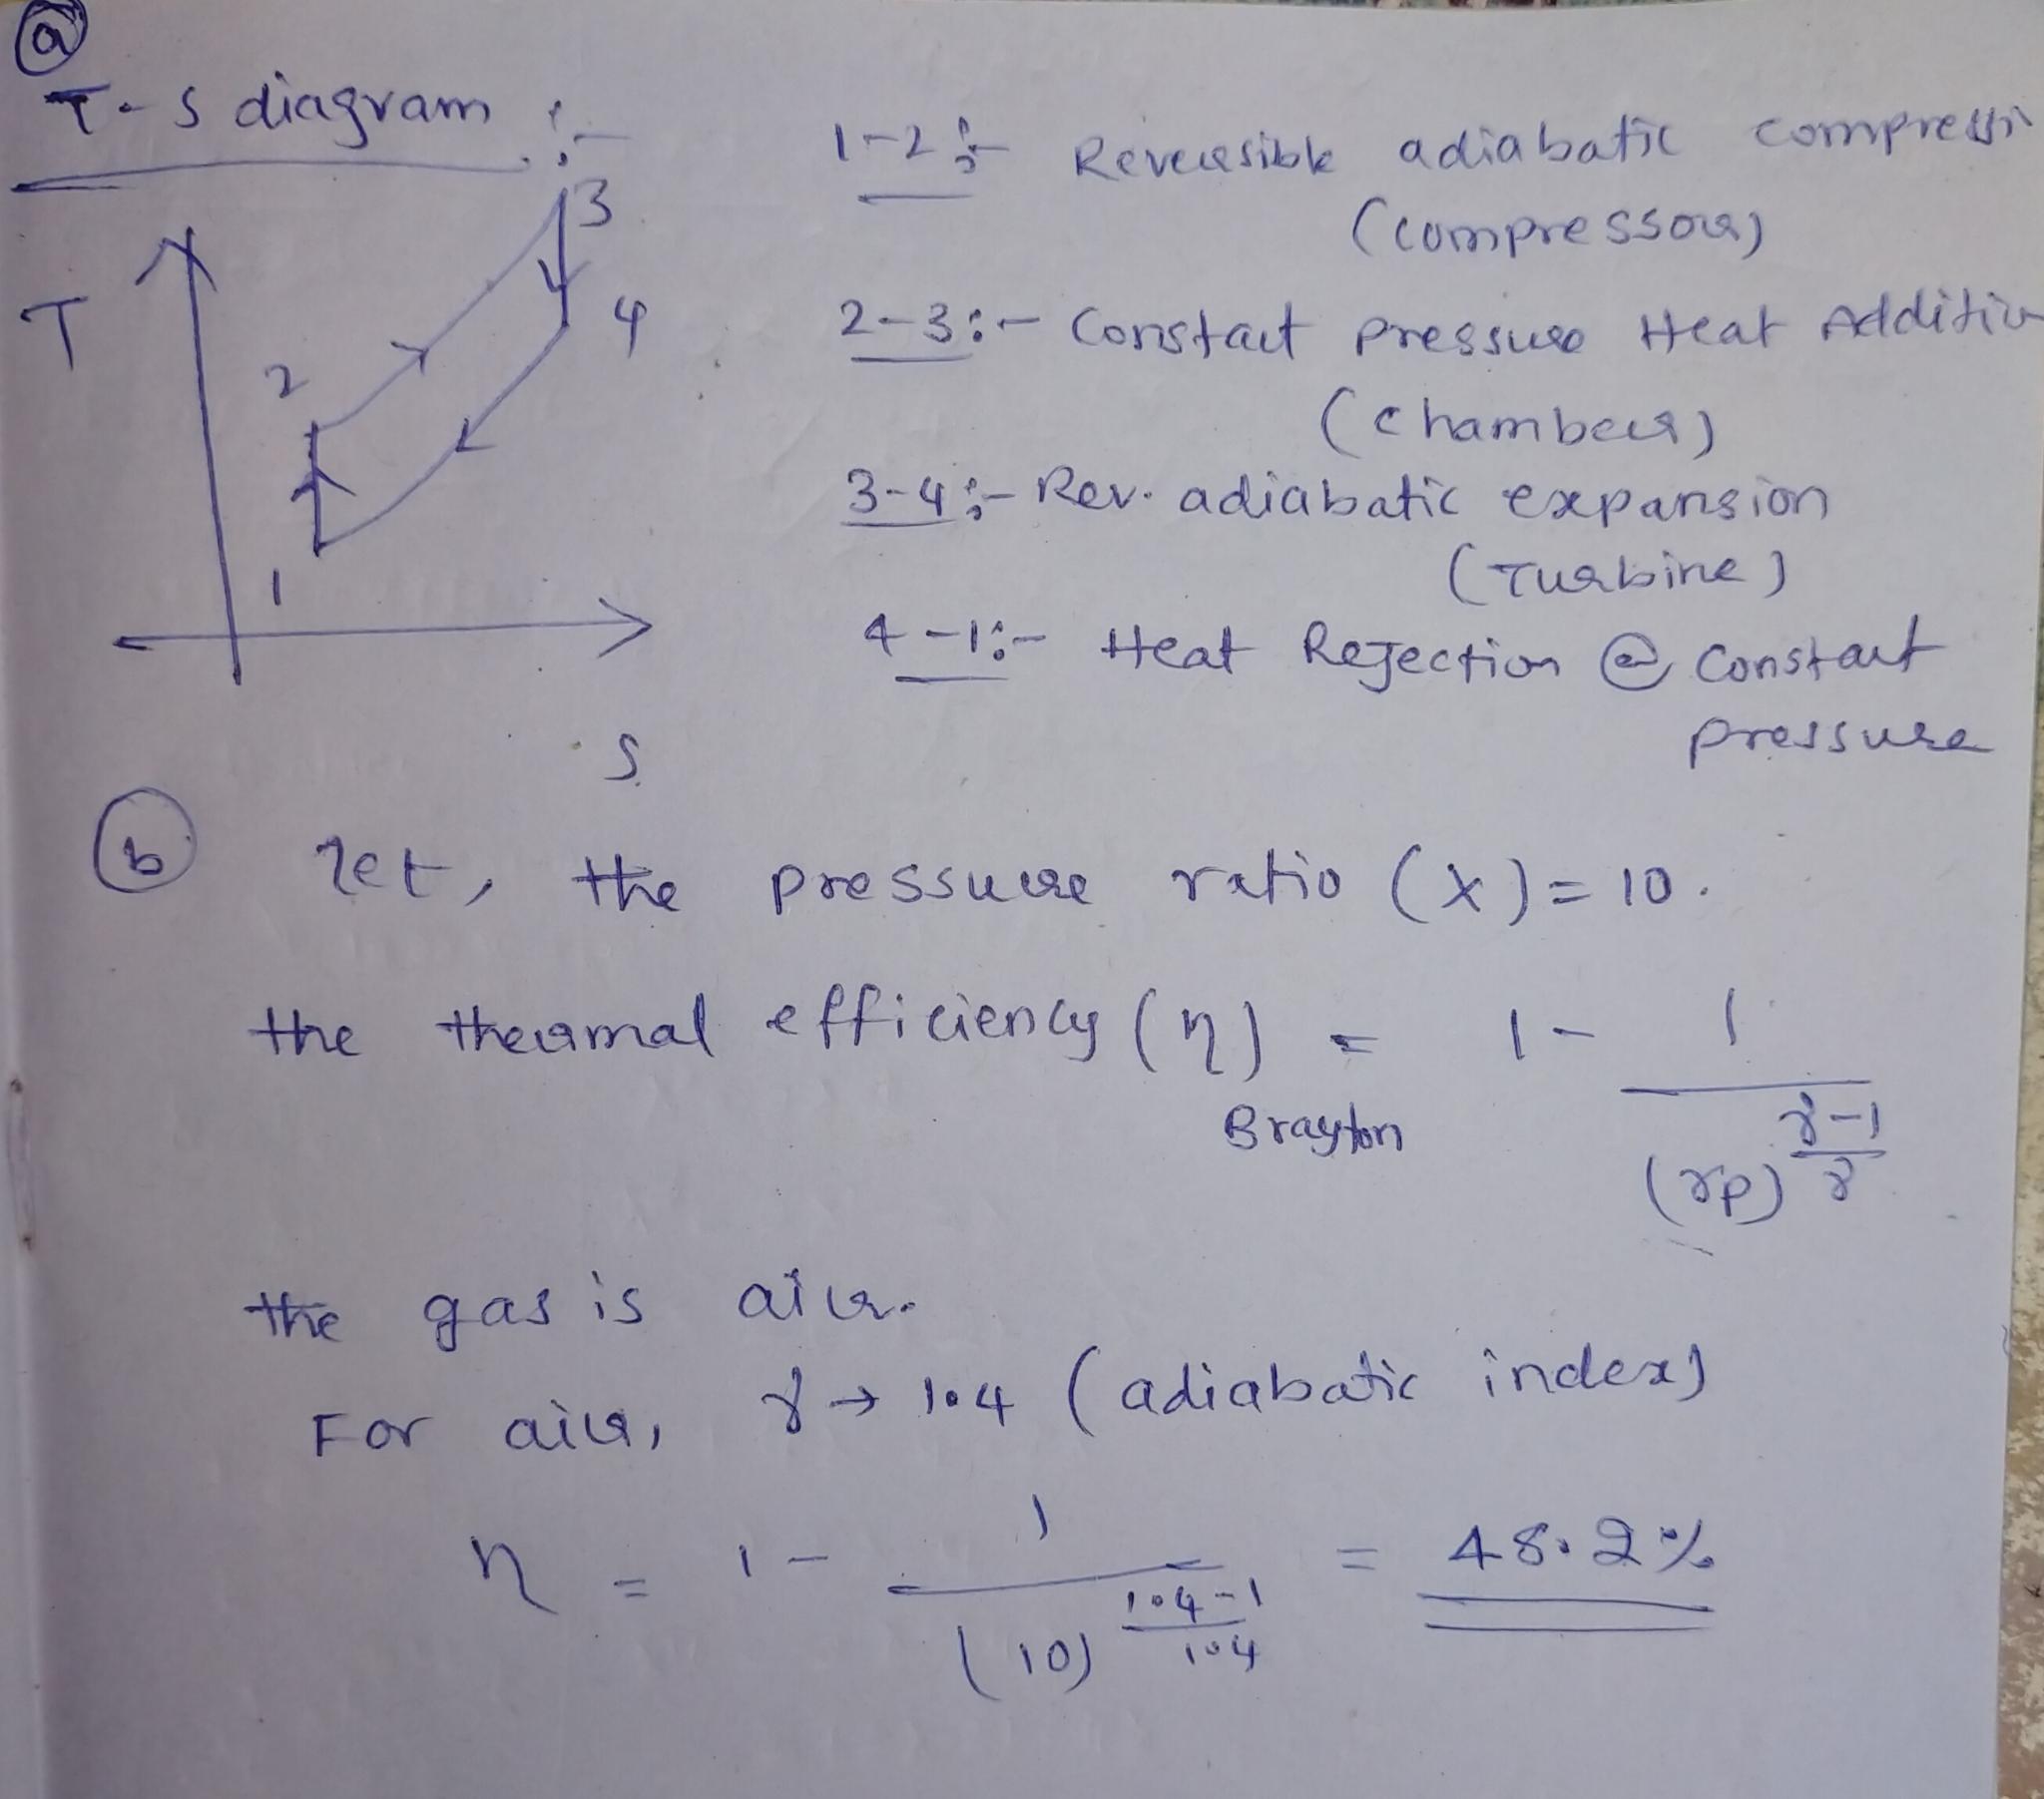 a
T-s diagram :-
3
4
T
2
1
s
1-2 :- Reversible adiabatic compressi
(compressor)
2-3 :- Constant pressure Heat Additio
(chamber)
3-4 :- Rev. adiabatic expansion
(Turbine)
4-1 :- Heat Rejection @ constant
pressure
b let, the pressure ratio (x) = 10.
the thermal efficiency (η) Brayton = 1 - 1 / (rp)^((γ-1)/γ)
the gas is air.
For air, γ → 1.4 (adiabatic index)
η = 1 - 1 / (10)^((1.4-1)/1.4) = 48.2%